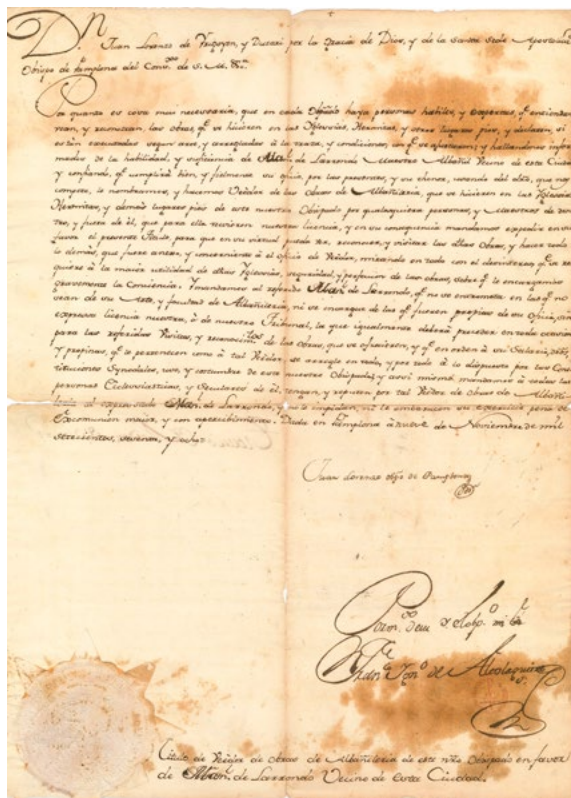 Dn. Juan Lorenzo de Yrigoyen, y Dutari por la Gracia de Dios, y de la Santa Sede Apostolica
Obispo de Pamplona del Cons.º de S. M. &ra.
Por quanto es cosa mui necessaria, que en cada Obispado haya personas habiles, y expertas, q.e entiendan
vean, y reconozcan, las obras, q.e se hicieren en las Yglesias, Hermitas, y otros lugares pios, y declaren, si
están executadas segun arte, y arregladas à la traza, y condiciones, con q.e se ajustaron; y hallandonos infor-
mados de la habilidad, y suficiencia de de Larrondo Maestro Albañil Vecino de esta Ciudad
y confiando, q.e cumplirà bien, y fielmente su oficio, por las presentes, y su tenor, usando del dro, que nos
compete, lo nombramos, y hacemos Veedor de las Obras de Albañileria, que se hicieren en las Yglesias
Hermitas, y demàs lugares pios de este nuestro Obispado por qualesquiera personas, y Maestros de
y fuera de èl, que para ello tuvieren nuestra licencia, y en su consequencia mandamos expedir en su
favor el presente Titulo, para que en su virtud pueda ver, reconocer, y visitar las dhas Obras, y hacer todo
lo demàs, que fuere anexo, y concerniente à el oficio de Veedor, mirando en todo con el desinteres, q.e se re-
quiere à la maior utilidad de dhas Yglesias, seguridad, y perfeccion de las obras, sobre q.e le encargamos
gravemente la Conciencia. Y mandamos al referido de Larrondo, q.e no se entrometa en las q.e no
sean de su Arte, y facultad de Albañileria, ni se encargue de las q.e fueren propias de su oficio, sin
expressa licencia nuestra, ò de nuestro Tribunal, la que igualmente deberà preceder en todo
para las referidas Visitas, y reconocim.tos de las obras, que se ofrecieren, y q.e en orden à su Salario,
y propinas, q.e le pertenecen como à tal Veedor, se arregle en todo, y por todo à lo dispuesto por las Cons-
tituciones Synodales, uso, y costumbre de este nuestro Obispado; y assi mismo, mandamos à todas las
personas Eclesiasticas, y Seculares de èl, tengan, y reputen por tal Veedor de Obras de Albañi-
leria al expressado de Larrondo, y no le impidan, ni le embarazen su exercicio pena de
Excomunion maior, y con apercibimiento. Dada en Pamplona à nueve de Noviembre de mil
setecientos, sesenta, y ocho
Juan Lorenzo Obpo de Pamplona
de
de
Titulo de Veedor de obras de Albañileria de este nrõ Obispado en favor
de de Larrondo Vecino de esta Ciudad.